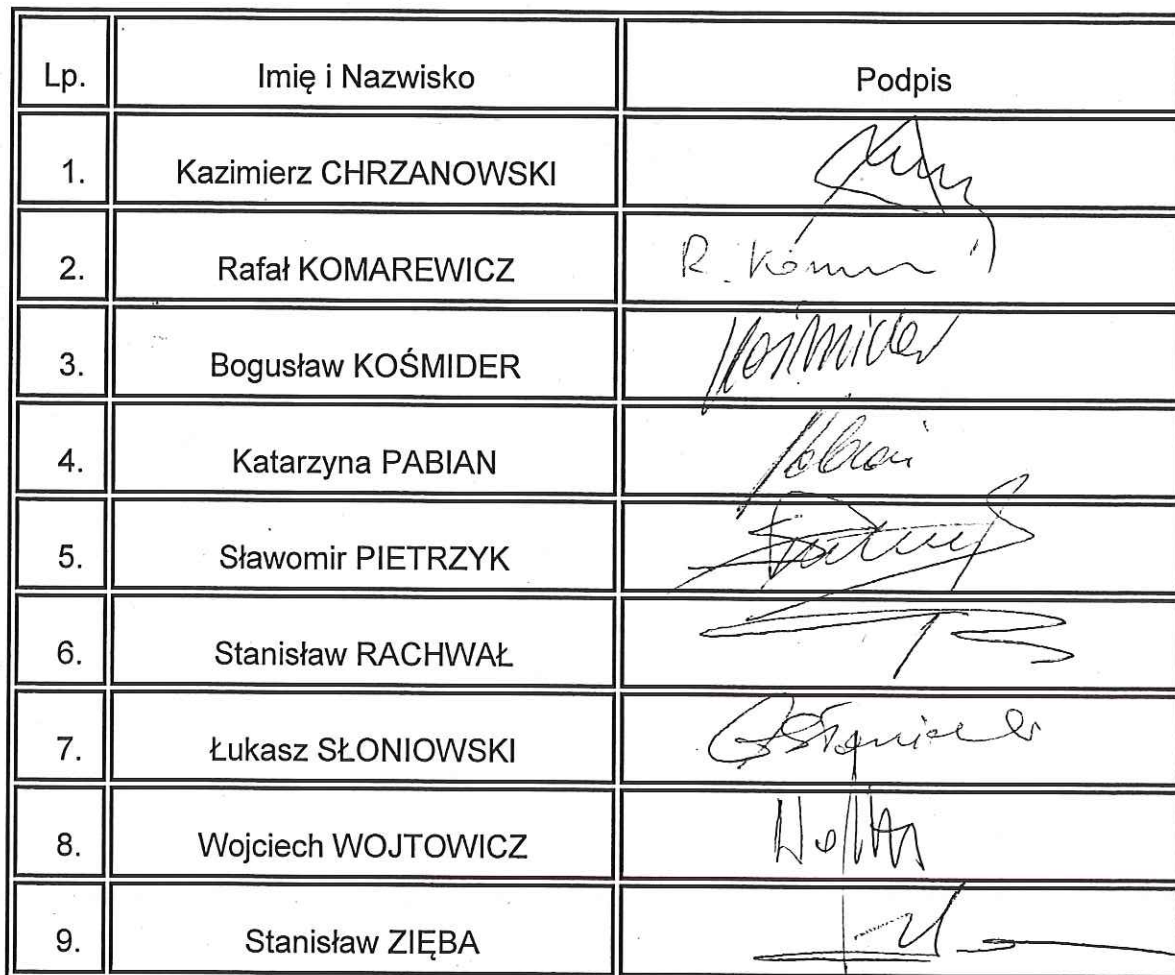 Lp. Imię i Nazwisko Podpis
1. Kazimierz CHRZANOWSKI
2. Rafał KOMAREWICZ R.
3. Bogusław KOŚMIDER Kośmider
4. Katarzyna PABIAN Pabian
5. Sławomir PIETRZYK
6. Stanisław RACHWAŁ
7. Łukasz SŁONIOWSKI
8. Wojciech WOJTOWICZ
9. Stanisław ZIĘBA